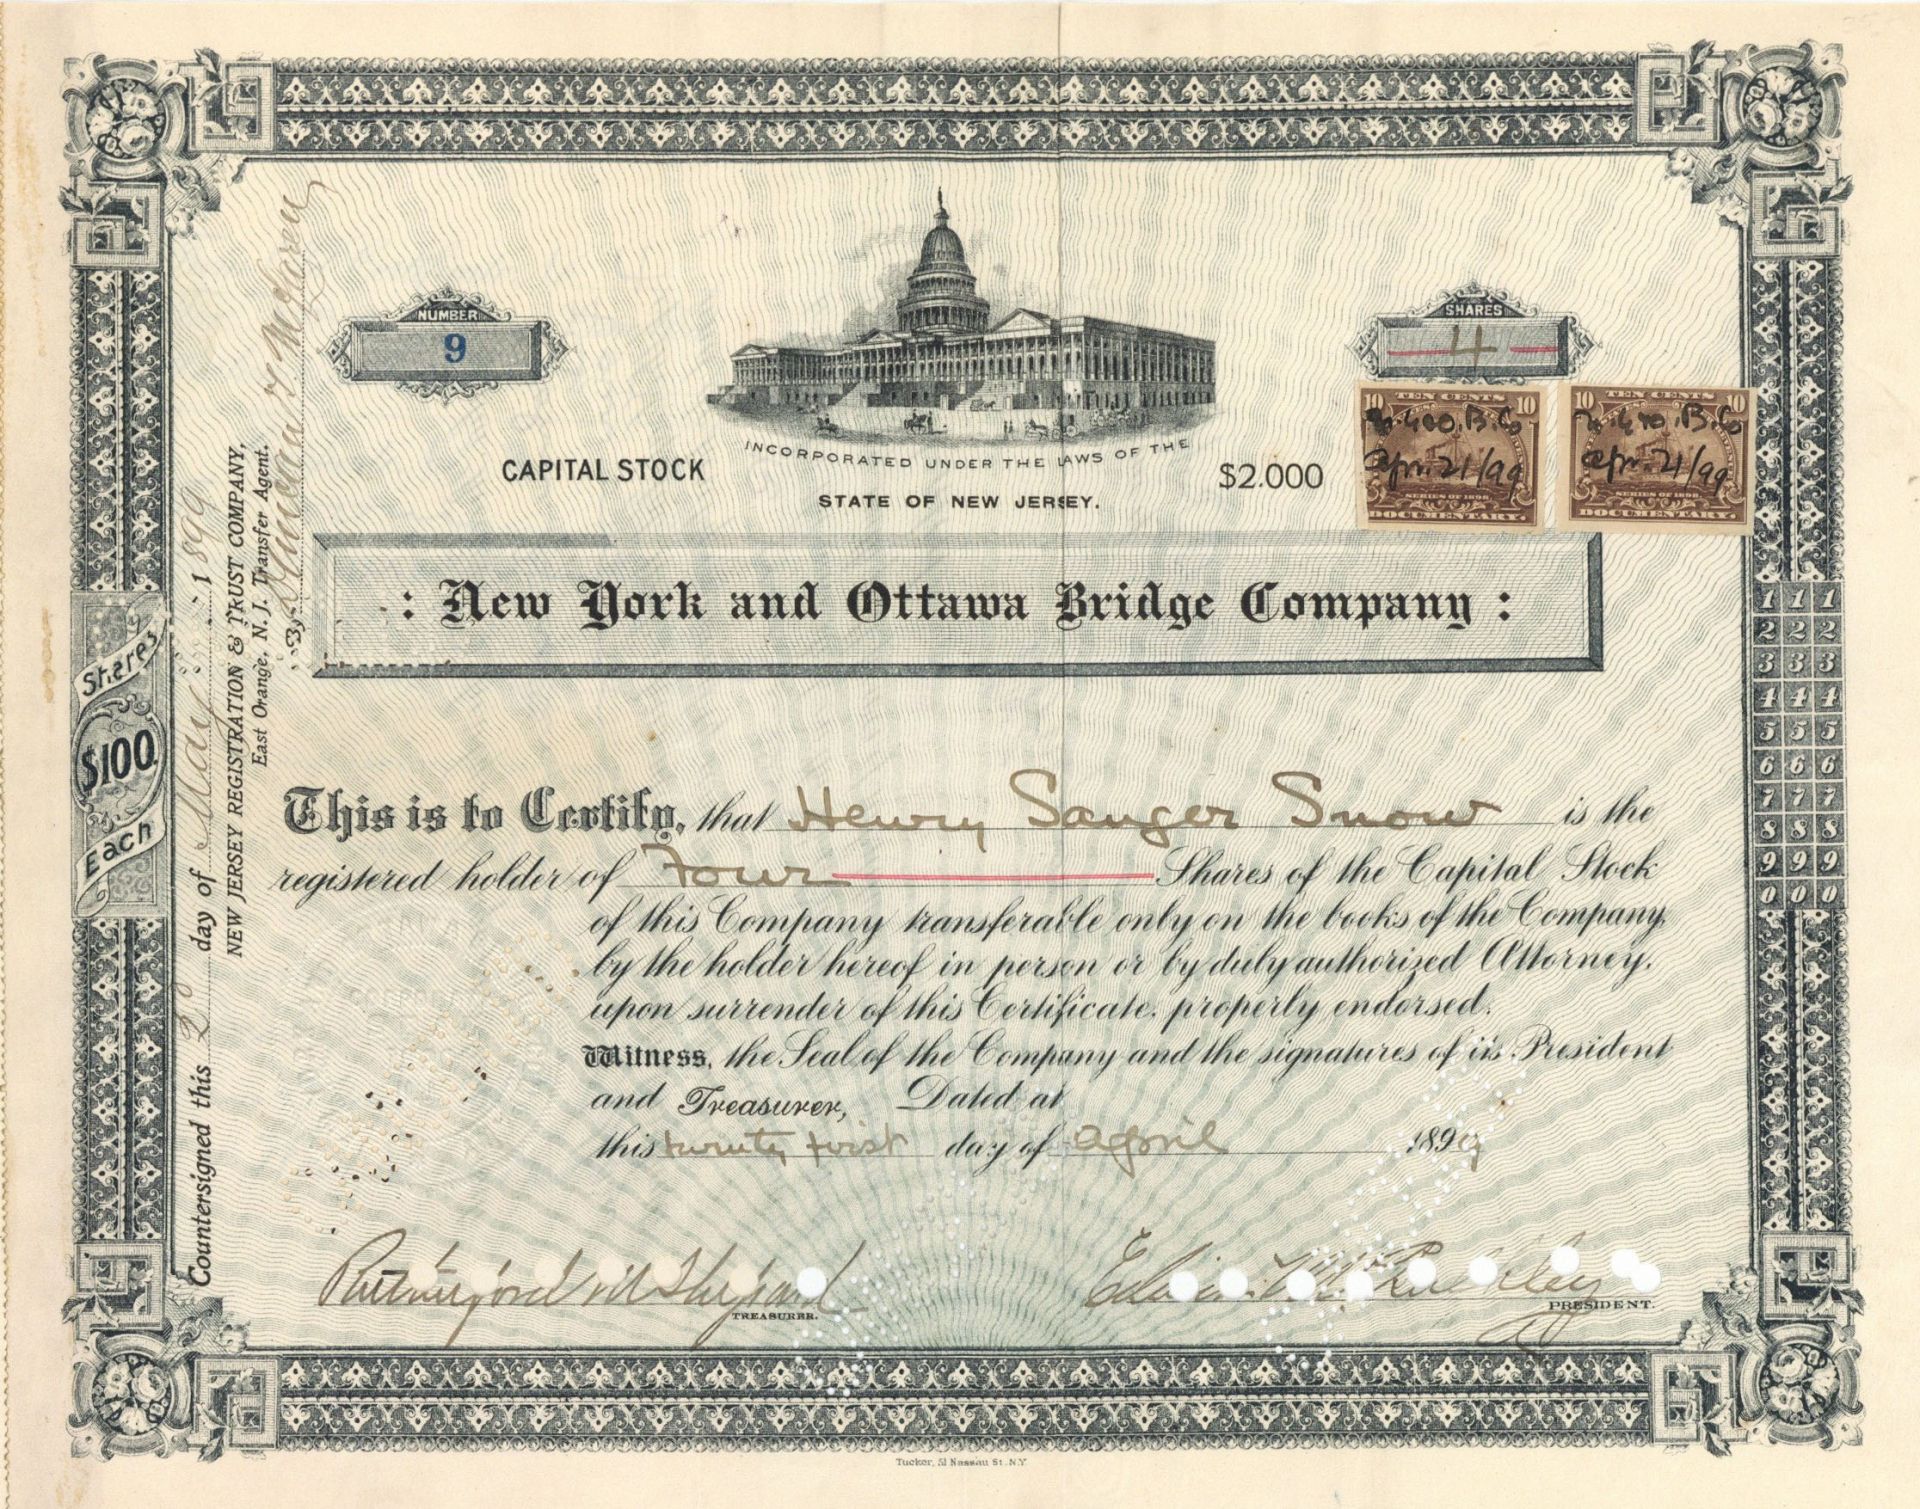 NUMBER
9
SHARES
4
INCORPORATED UNDER THE LAWS OF THE
CAPITAL STOCK
$2.000
STATE OF NEW JERSEY.
10 TEN CENTS 10
Apr. 21/99
SERIES OF 1898
DOCUMENTARY.
10 TEN CENTS 10
Apr. 21/99
SERIES OF 1898
DOCUMENTARY.
: New York and Ottawa Bridge Company :
This is to Certify, that Henry Sanger Snow is the
registered holder of Four Shares of the Capital Stock
of this Company transferable only on the books of the Company,
by the holder hereof in person or by duly authorized Attorney,
upon surrender of this Certificate, properly endorsed.
Witness, the Seal of the Company and the signatures of its President
and Treasurer, Dated at
this twenty first day of April 1899
TREASURER.
PRESIDENT.
Shares
$100
Each
Countersigned this 20 day of May 1899
NEW JERSEY REGISTRATION & TRUST COMPANY,
East Orange, N. J. Transfer Agent.
By
1 1 1
2 2 2
3 3 3
4 4 4
5 5 5
6 6 6
7 7 7
8 8 8
9 9 9
0 0 0
Tucker, 51 Nassau St. N.Y.